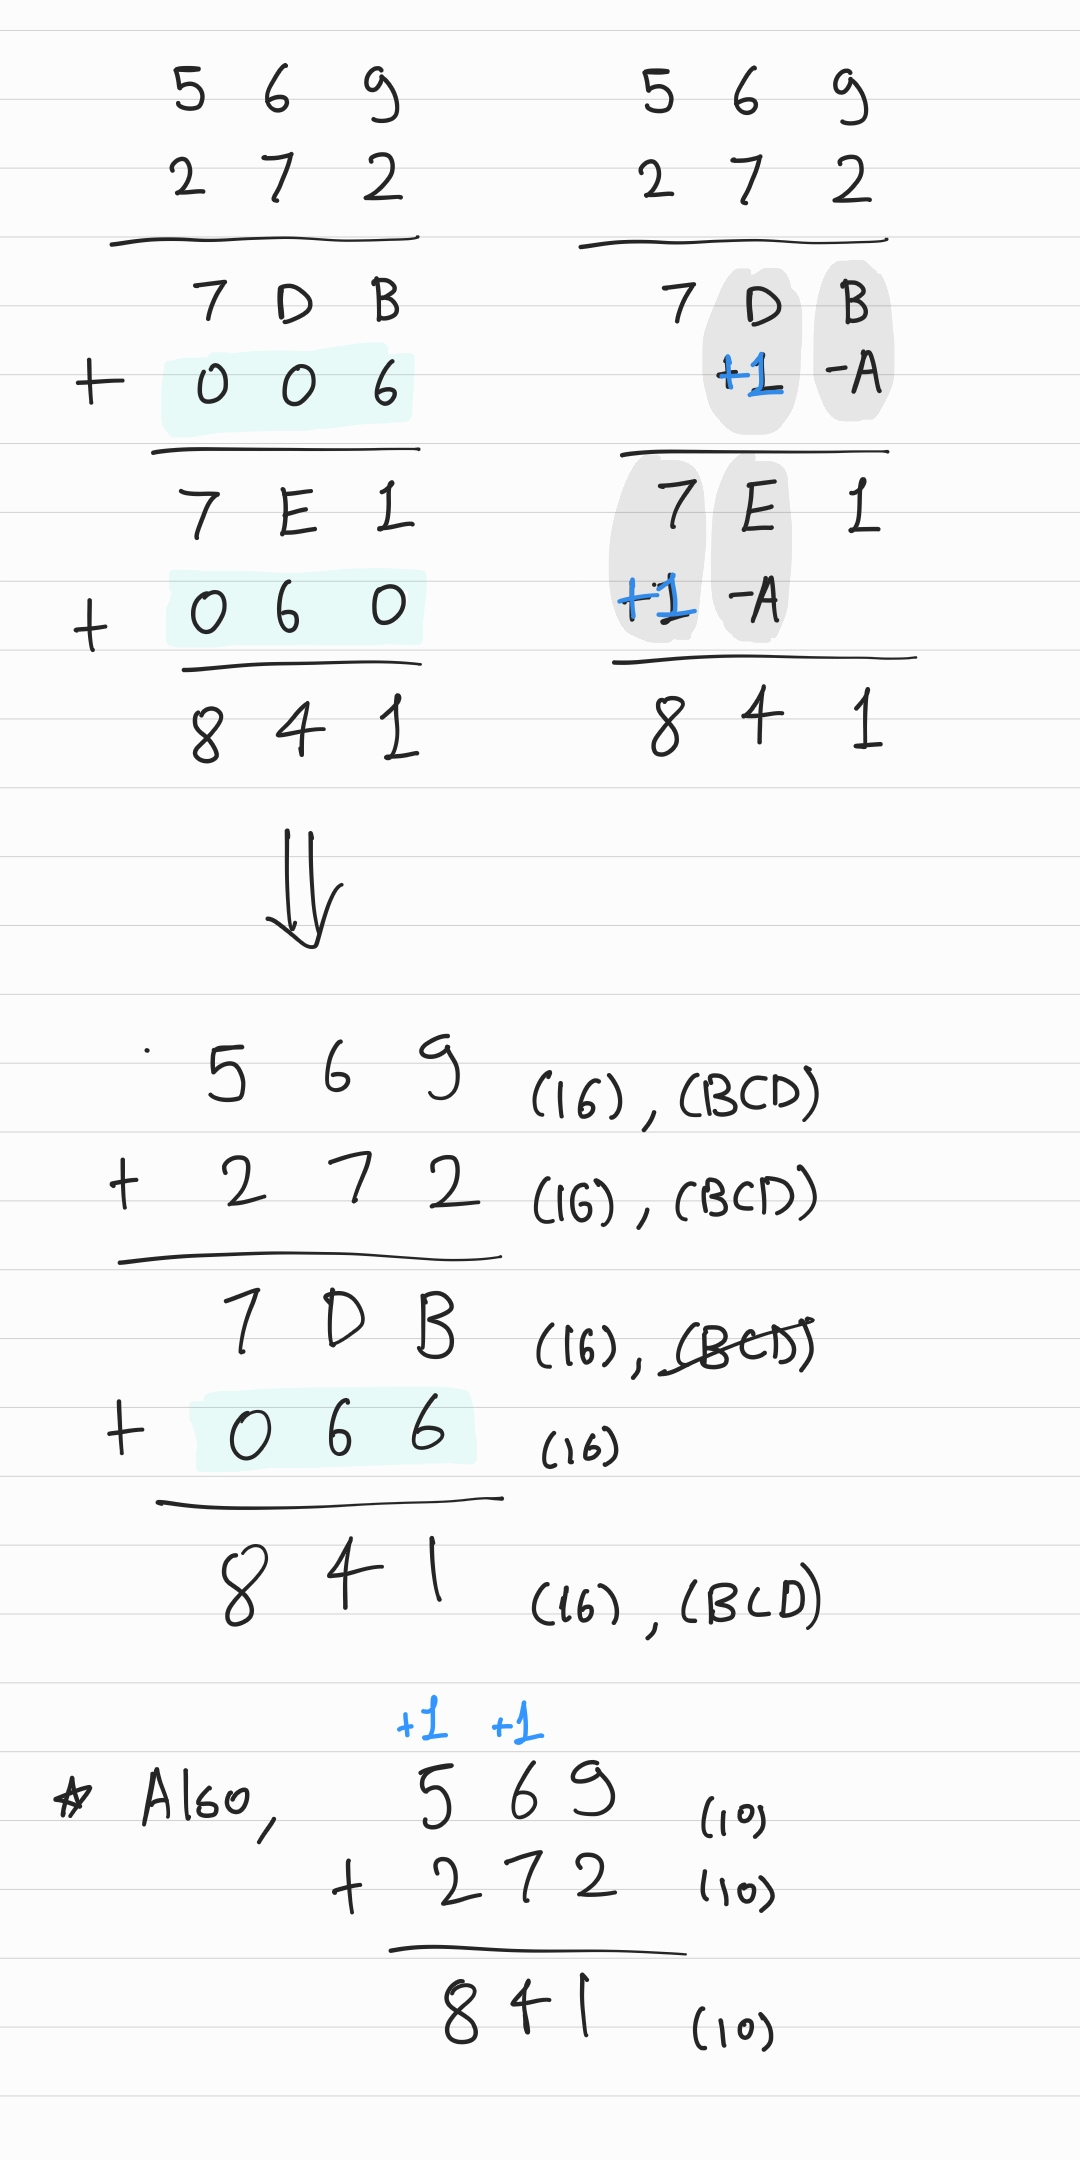 5 6 9
2 7 2
7 D B
+ 0 0 6
7 E 1
+ 0 6 0
8 4 1
5 6 9
2 7 2
7 D B
+1 -A
7 E 1
+1 -A
8 4 1
⇓
5 6 9 (16), (BCD)
+ 2 7 2 (16), (BCD)
7 D B (16), (BCD)
+ 0 6 6 (16)
8 4 1 (16), (BCD)
+1 +1
* Also, 5 6 9 (10)
+ 2 7 2 (10)
8 4 1 (10)